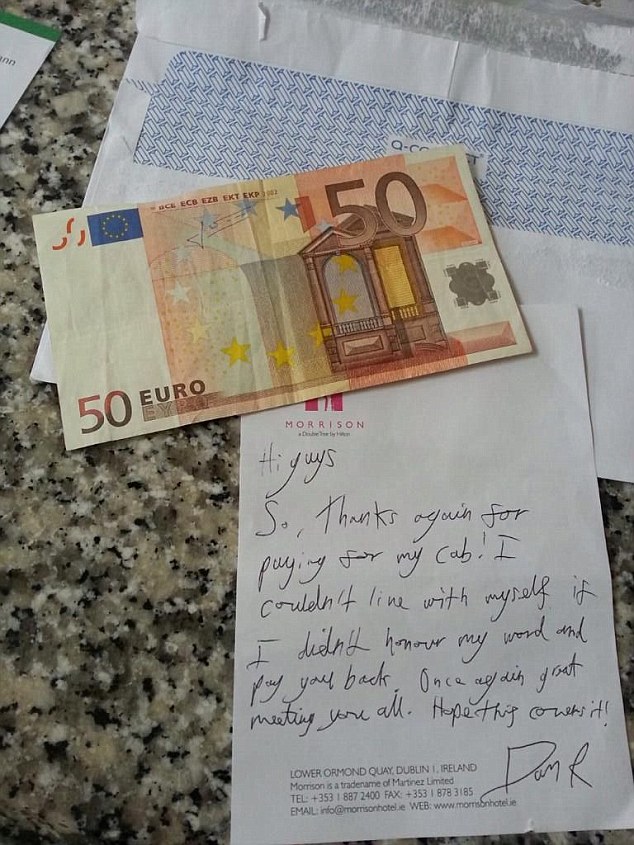 ann
Q-CO
BCE ECB EZB EKT EKP 2002
50
50 EURO
ΕΥΡΩ
MORRISON
a DoubleTree by Hilton
Hi guys
So, thanks again for
paying for my cab! I
couldn't live with myself if
I didn't honour my word and
pay you back. Once again great
meeting you all. Hope this covers it!
Dan R
LOWER ORMOND QUAY, DUBLIN 1, IRELAND
Morrison is a tradename of Martinez Limited
TEL: +353 1 887 2400 FAX: +353 1 878 3185
EMAIL: info@morrisonhotel.ie WEB: www.morrisonhotel.ie